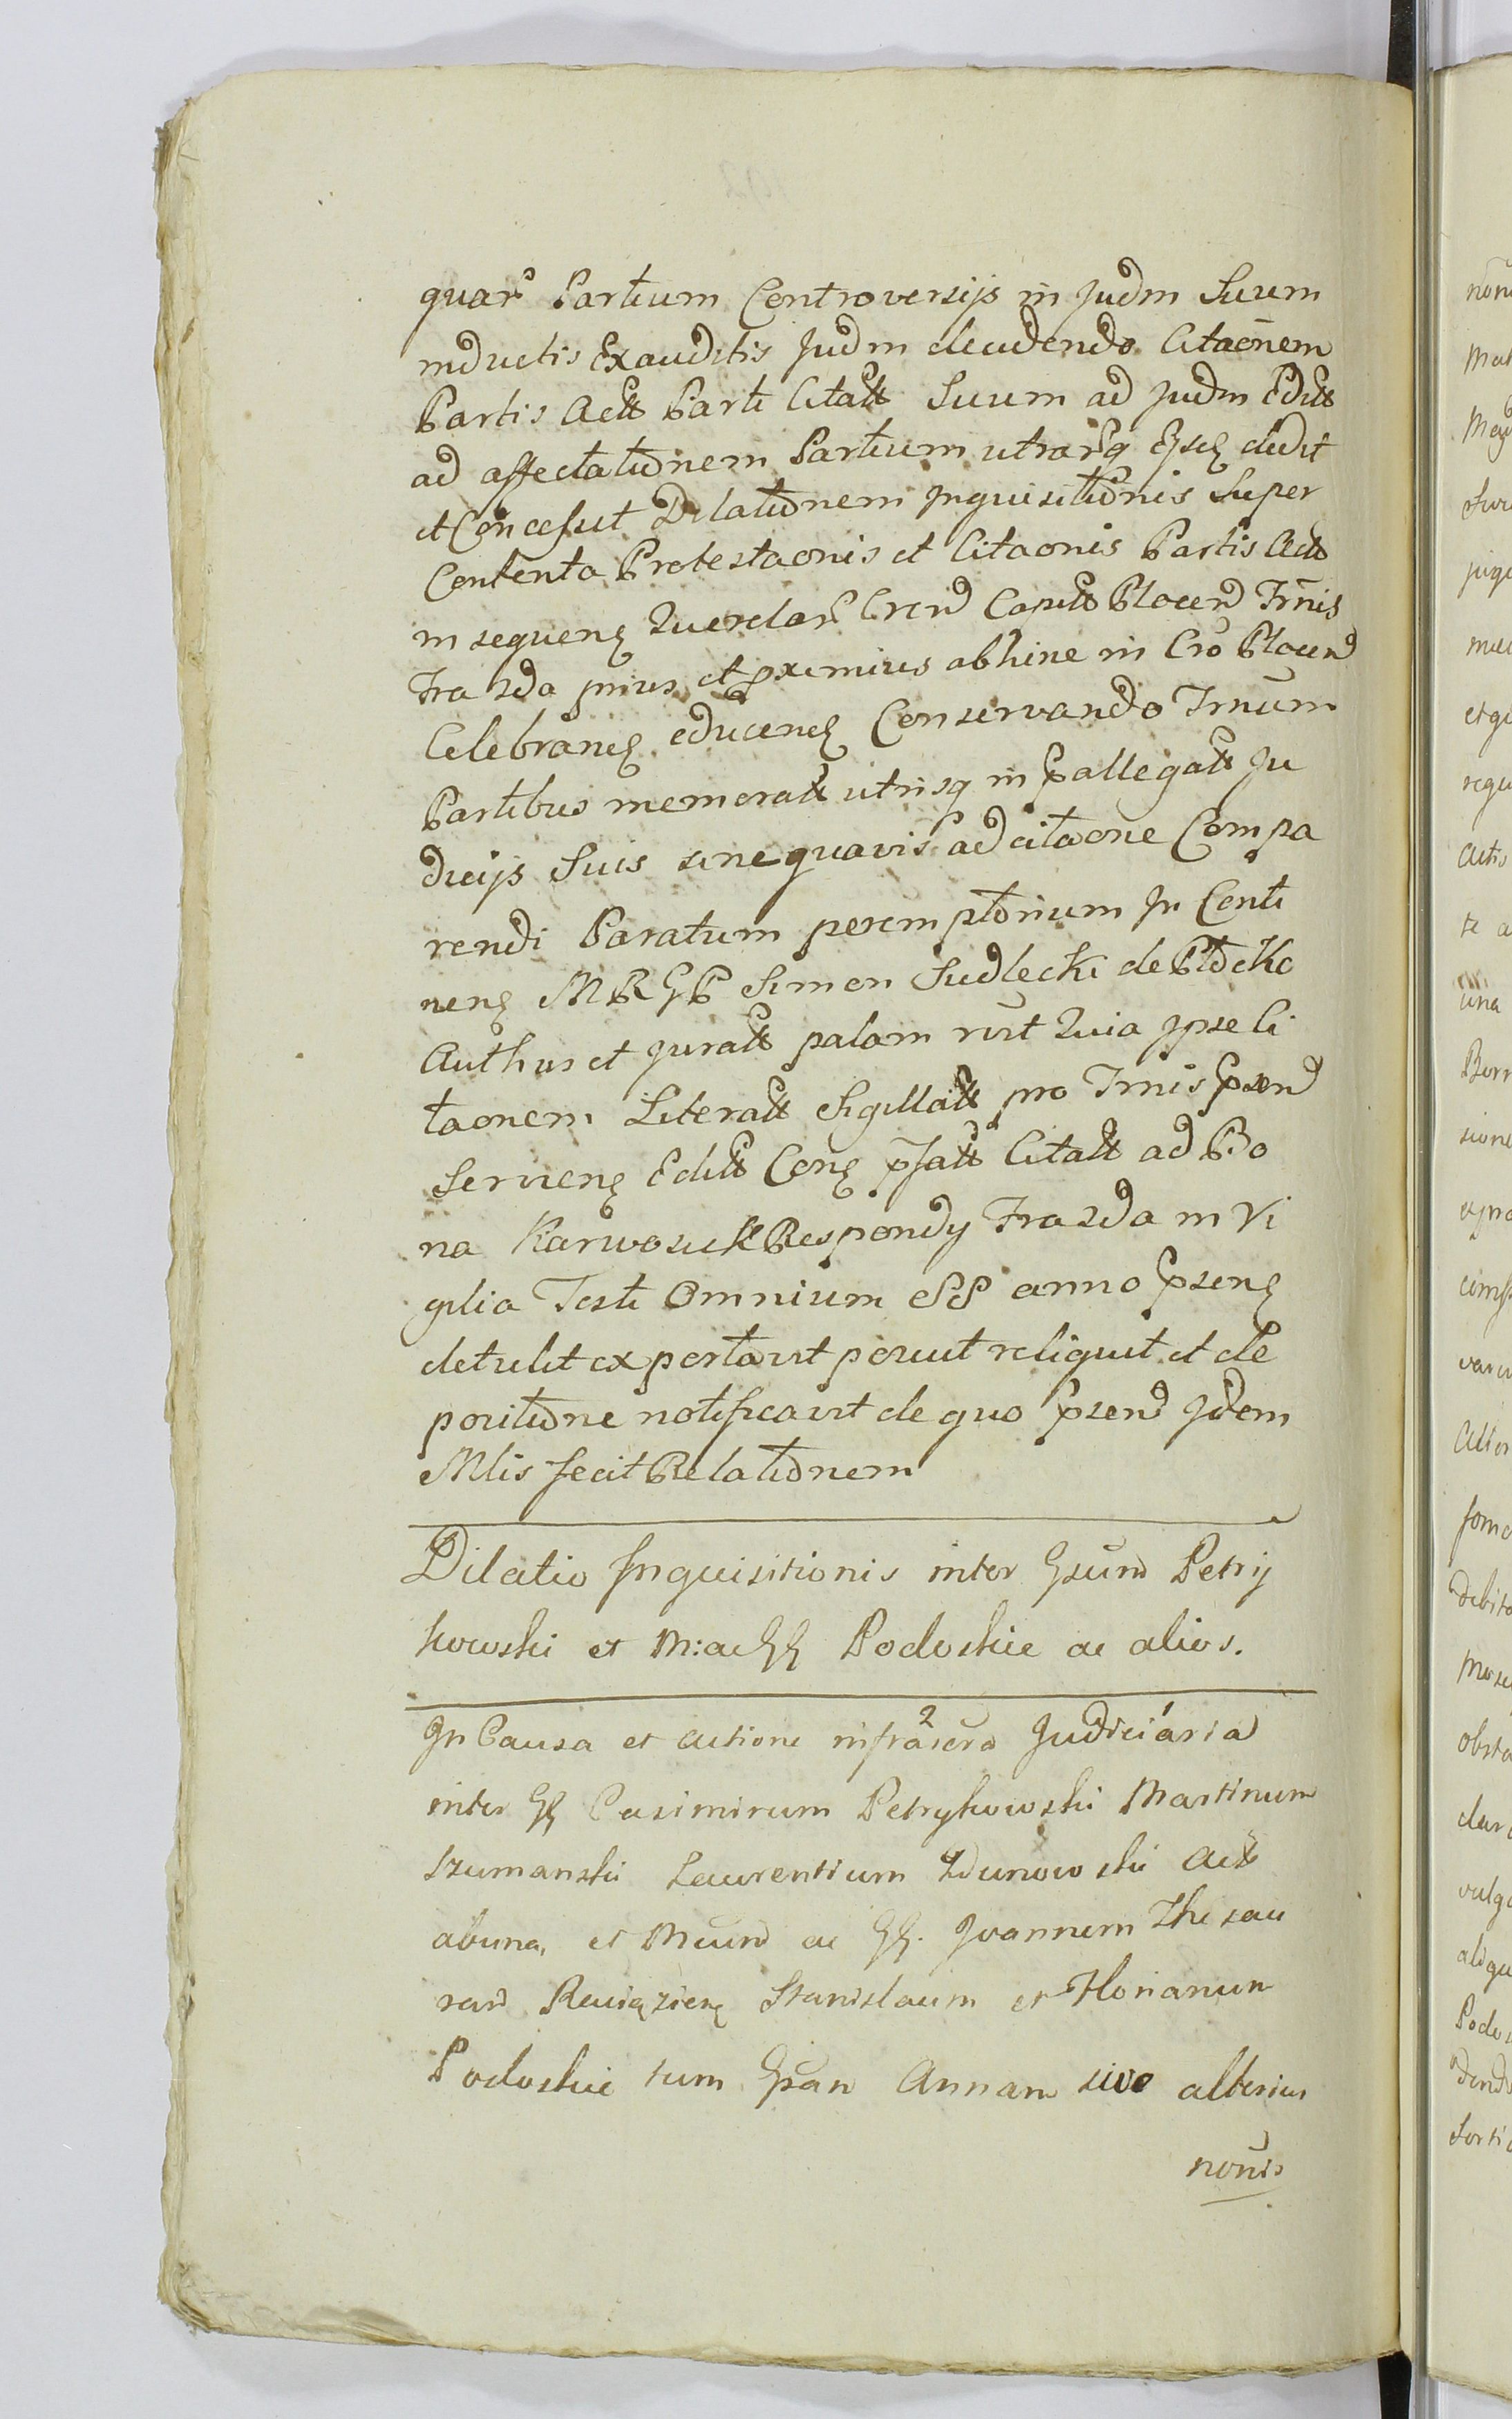 quar Partium Controversijs in Judm Suum
inductis Exauditis Judm decidendo Citaõnem
Partis Act Parti Citatt Suum ad Judm Edit
ad affectationem Partium utrarq Ejsd dedit
et Concessit Dilationem Inquisitionis Super
Contenta Protestaonis et Citaonis Partis Act
in sequen Querelar Cren Capit Plocen Trnis
Fra 2da prius et proximius abhinc in Cro Plocen
Celebran educen Conservando Trnum
Partibus memorat utrisq in pallegat Ju
dicijs Suis sine quavis adcitaone Compa
rendi Paratum peremptorium In Conti
nen MRGP Simon Sudlecki de Plocko
Authus et jurat palam rlt Quia ipse Ci
taonem Literat Sigillat pro Trnis psen
Servien Edit Con pfat Citat ad Bo
na Karwosieki Respondy Fra 2da in Vi
gilia Festi Omnium SS anno psen
detulit exportavit posuit reliquit et de
positione notificavit de quo psens Idem
Mlis fecit Relationem
Dilatio Inquisitionis inter Gsum Petry
kowski et M: ac GG Podoskie ac alios.
In Causa et actione infrascra Judiciaria
inter GG Casimirum Petrykowski Martinum
Szumanski Laurentium Zdunowski Act
abuna, et Mcum ac GG. Joannem Thesau
rar Raciązien Stanislaum et Florianum
Podoskie tum Gsan Annam sive alterius
nonis